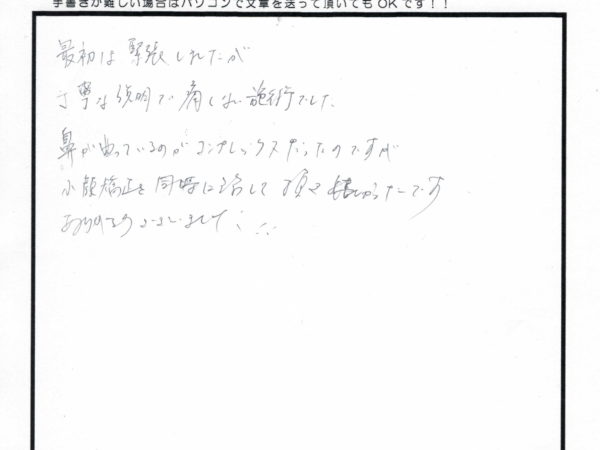 手書きが難しい場合はパソコンで文章を送って頂いてもOKです！！
最初は緊張しましたが
丁寧な説明で痛くない施術でした
鼻が曲っているのがコンプレックスだったのですが
小顔矯正と同時に治して頂き嬉しかったです
ありがとうございました